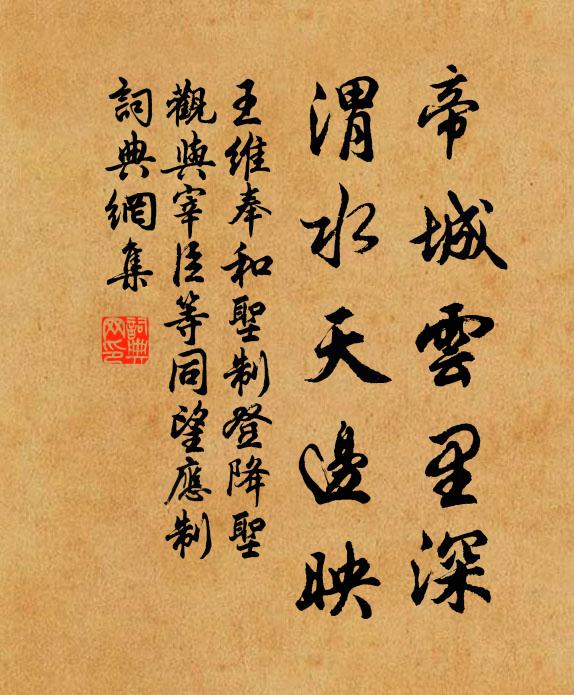 帝城雲里深
渭水天邊映
王維奉和聖制登降聖
觀與宰臣等同望應制
詞典網集
詞典
网印